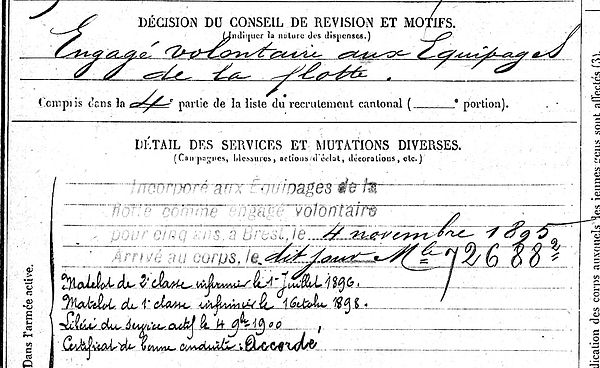 DÉCISION DU CONSEIL DE REVISION ET MOTIFS.
(Indiquer la nature des dispenses.)
Engagé volontaire aux Equipages
de la flotte.
Compris dans la 4e partie de la liste du recrutement cantonal ( e portion).
DÉTAIL DES SERVICES ET MUTATIONS DIVERSES.
(Campagnes, blessures, actions d'éclat, décorations, etc.)
Incorporé aux Équipages de la
flotte comme engagé volontaire
pour cinq ans, à Brest, le 4 novembre 1895
Arrivé au corps, le dit jour Mle 72688²
Matelot de 2e classe infirmier le 1er Juillet 1896.
Matelot de 1e classe infirmier le 1 Octobre 1898.
Libéré du service actif le 4 9bre 1900
Certificat de bonne conduite: Accordé
Dans l'armée active.
dication des corps auxquels les jeunes gens sont affectés (3).